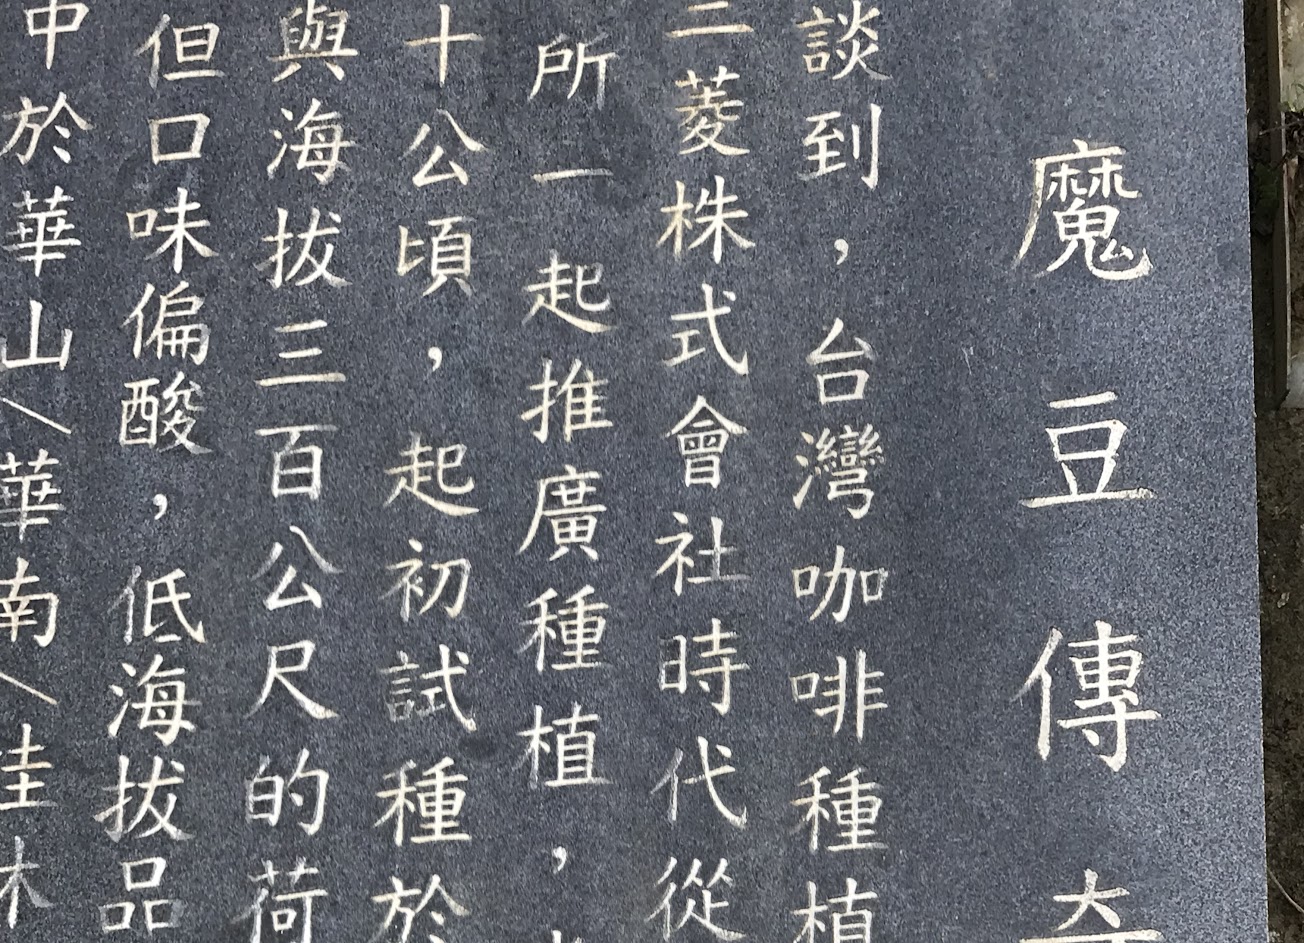 魔豆傳奇
談到，台灣咖啡種植
三菱株式會社時代從
所一起推廣種植，
十公頃，起初試種於
與海拔三百公尺的荷
但口味偏酸，低海拔品
中於華山、華南、桂林